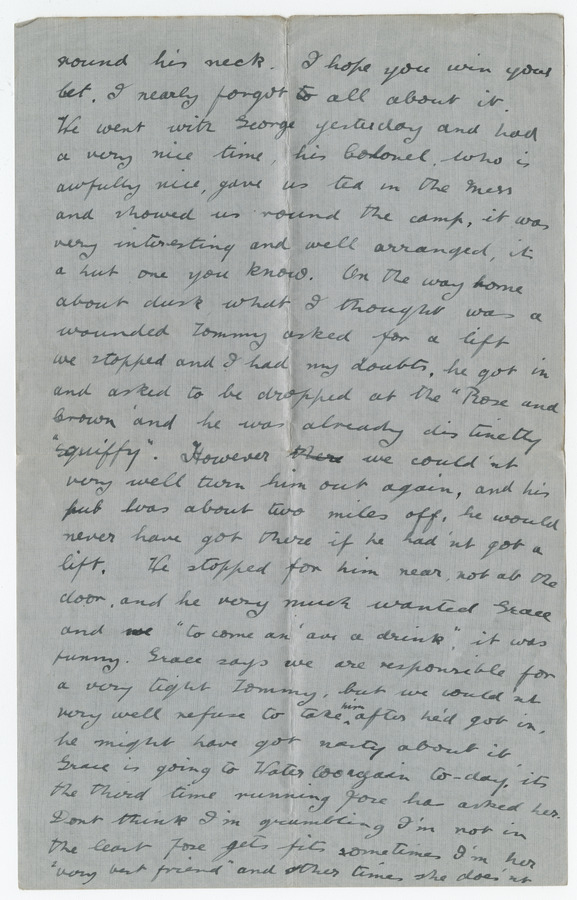 round his neck. I hope you win your
bet, I nearly forgot to all about it.
We went with George yesterday and had
a very nice time, his Colonel, who is
awfully nice, gave us tea in the Mess
and showed us round the camp, it was
very interesting and well arranged, it
a hut one you know. On the way home
about dusk what I thought was a
wounded Tommy asked for a lift
we stopped and I had my doubts, he got in
and asked to be dropped at the "Rose and
Crown" and he was already distinctly
"squiffy". However there we could'nt
very well turn him out again, and his
pub was about two miles off, he would
never have got there if he had'nt got a
lift. We stopped for him near, not at the
door, and he very much wanted Grace
and me "to come an' ave a drink", it was
funny. Grace says we are responsible for
a very tight Tommy, but we could'nt
very well refuse to take him after he'd got in,
he might have got nasty about it.
Grace is going to again to-day, its
the third time running Jose has asked her.
Dont think I'm grumbling I'm not in
the least Jose gets fits sometimes I'm her
"very best friend" and other times she does'nt